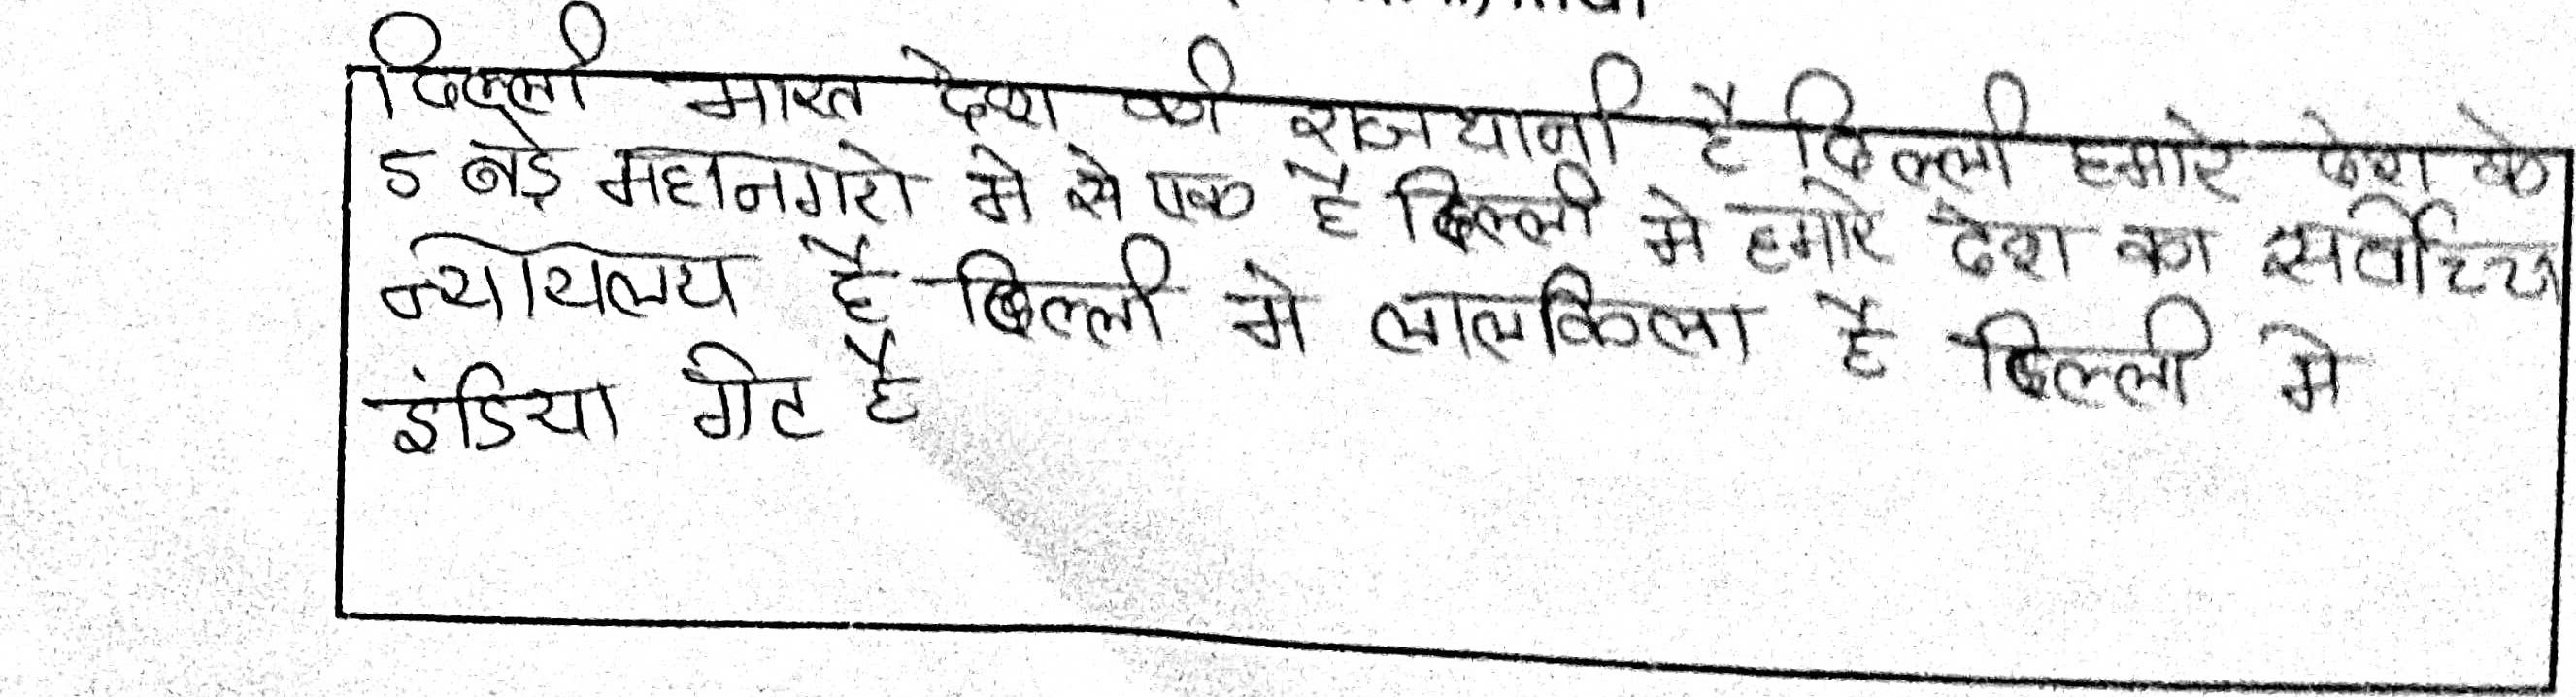 दिल्ली भारत देश की राजधानी है दिल्ली हमारे देश के
5 बड़े महानगरो मे से एक है दिल्ली मे हमारे देश का सर्वोच्च
न्यायिलय है दिल्ली मे लालकिला है दिल्ली मे
इंडिया गेट है